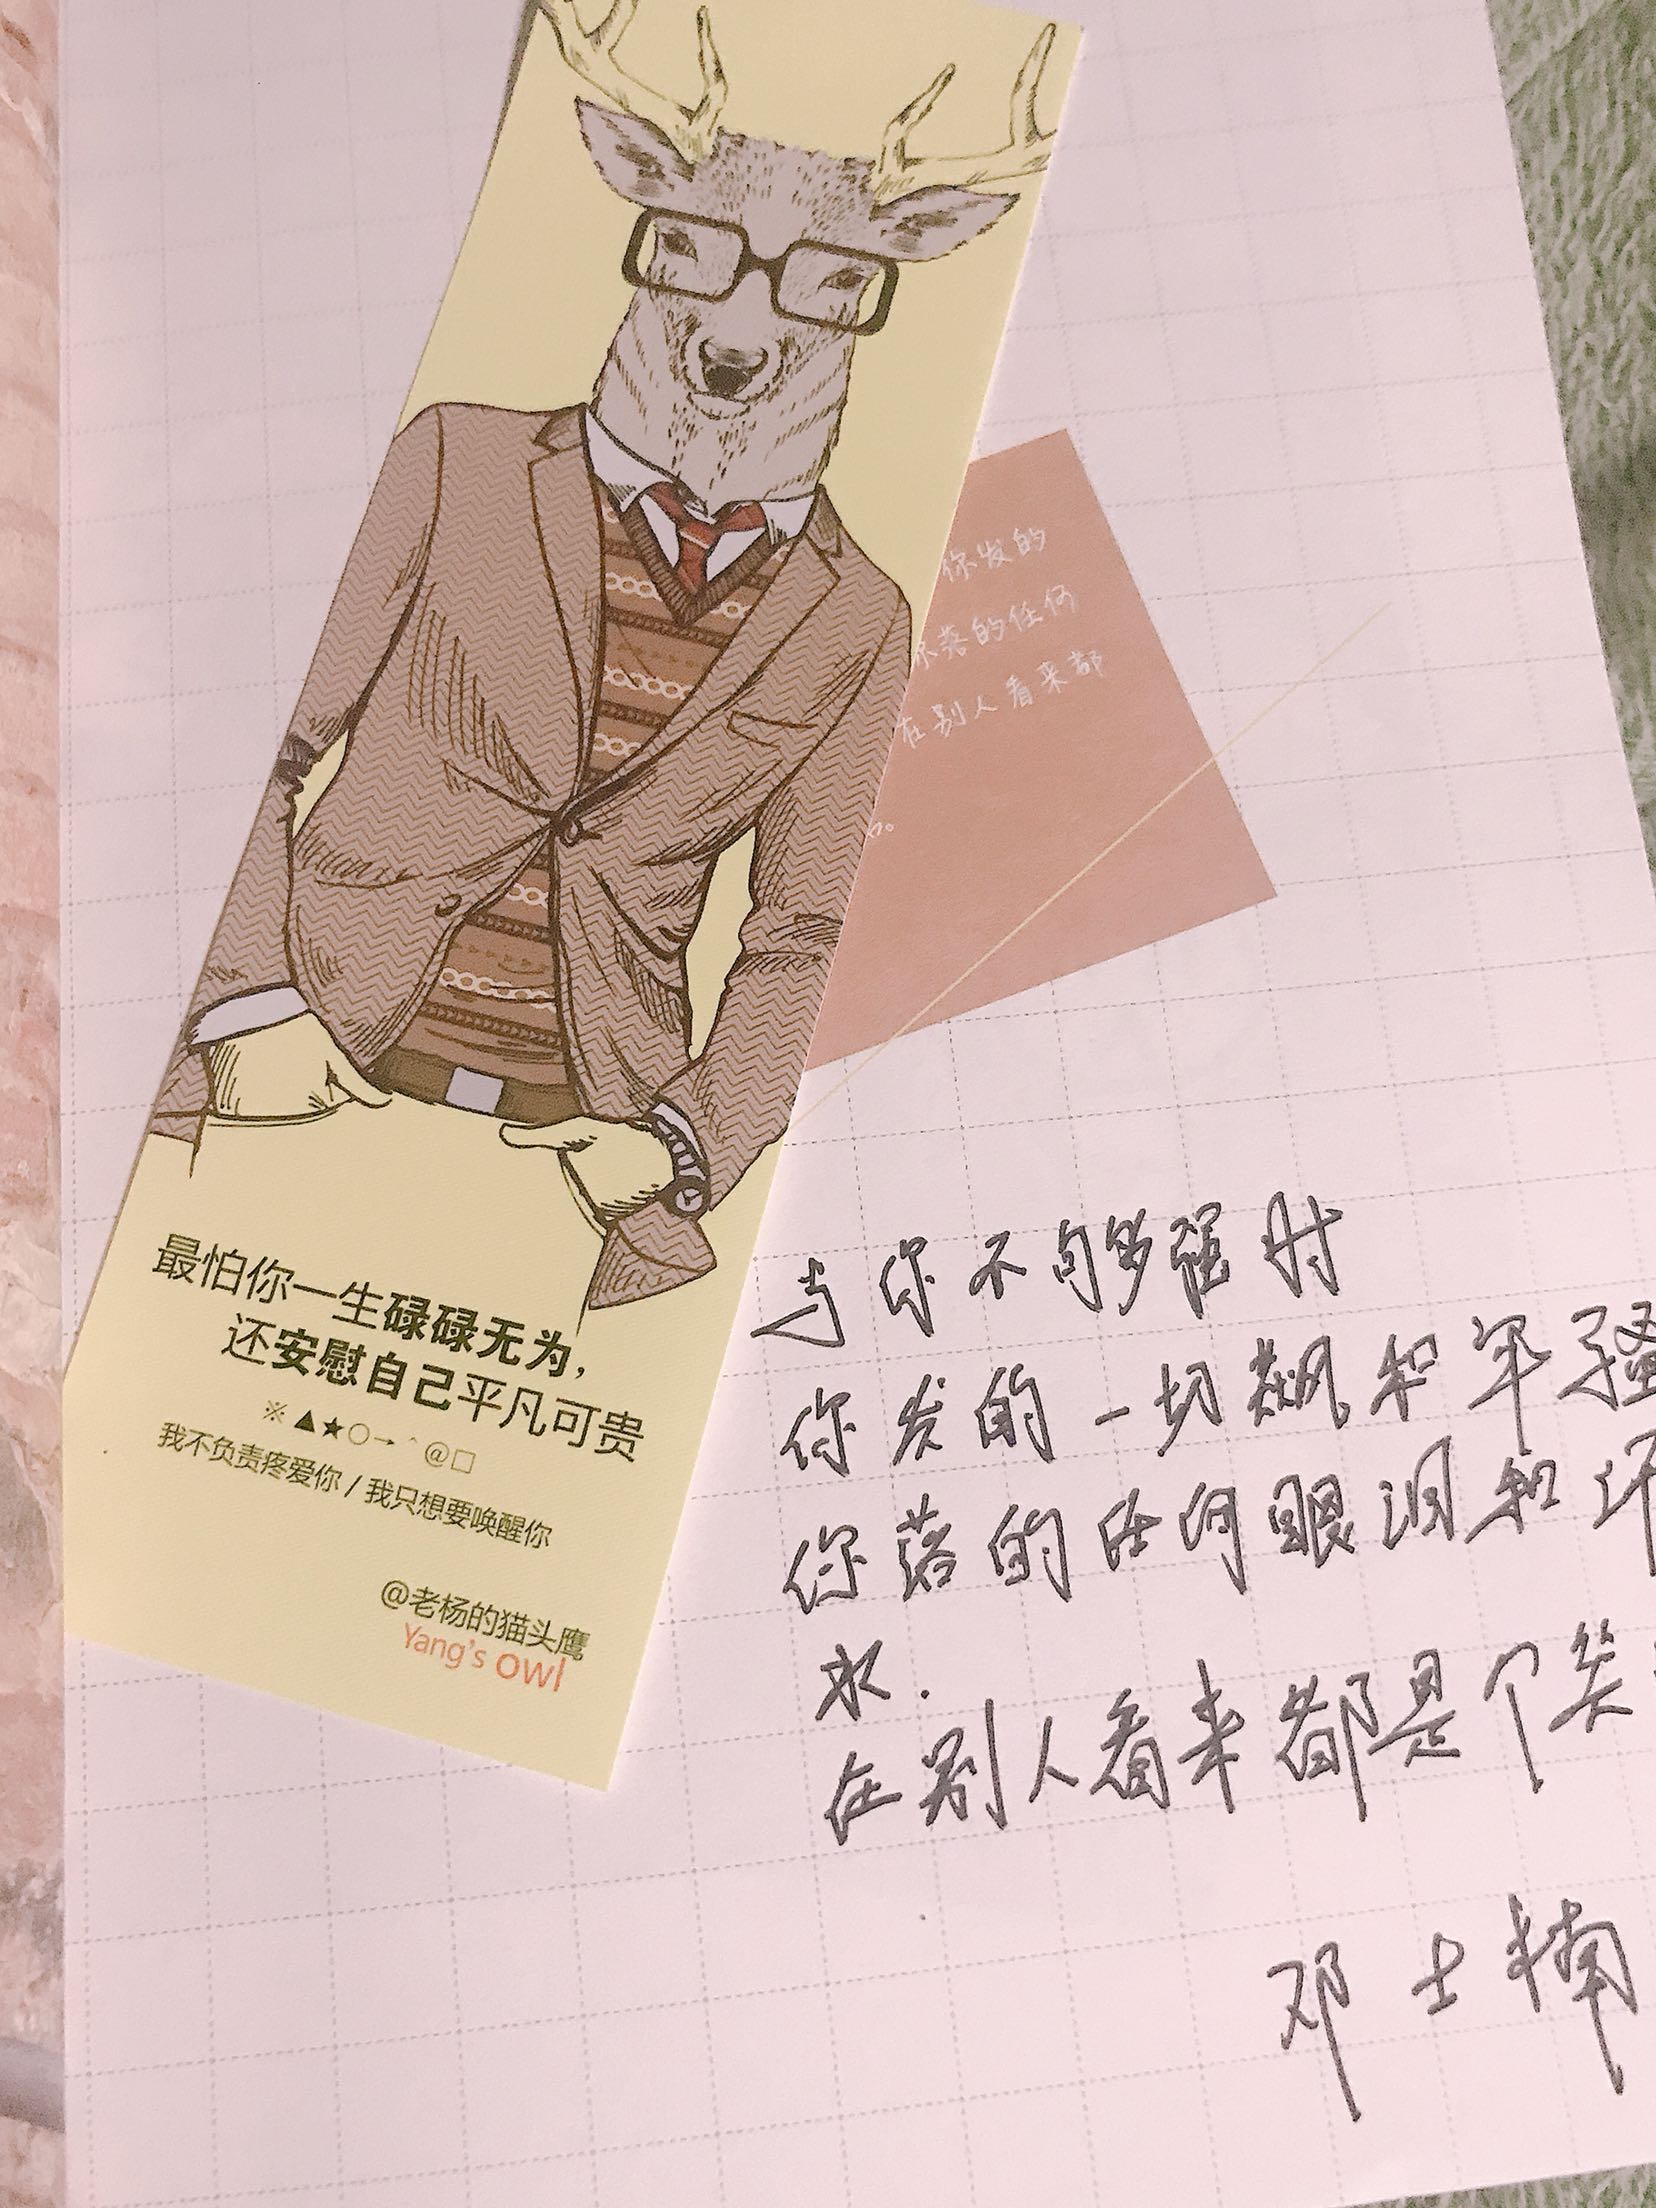 你发的
你落的任何
在别人看来都
最怕你一生碌碌无为，
还安慰自己平凡可贵
※▲★○→＾@□
我不负责疼爱你 / 我只想要唤醒你
@老杨的猫头鹰
Yang's Owl
当你不够强时
你发的一切飙和牢骚
你落的任何眼泪和汗
水.
在别人看来都是个笑
邓士楠